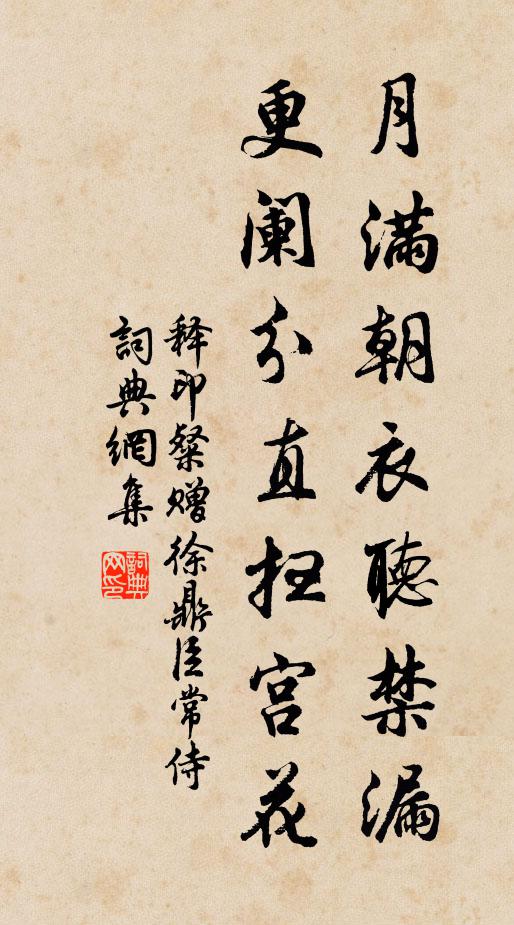 月满朝衣聽禁漏
更阑分直扫宫花
释印粲赠徐鼎臣常侍
詞典網集
詞典网印